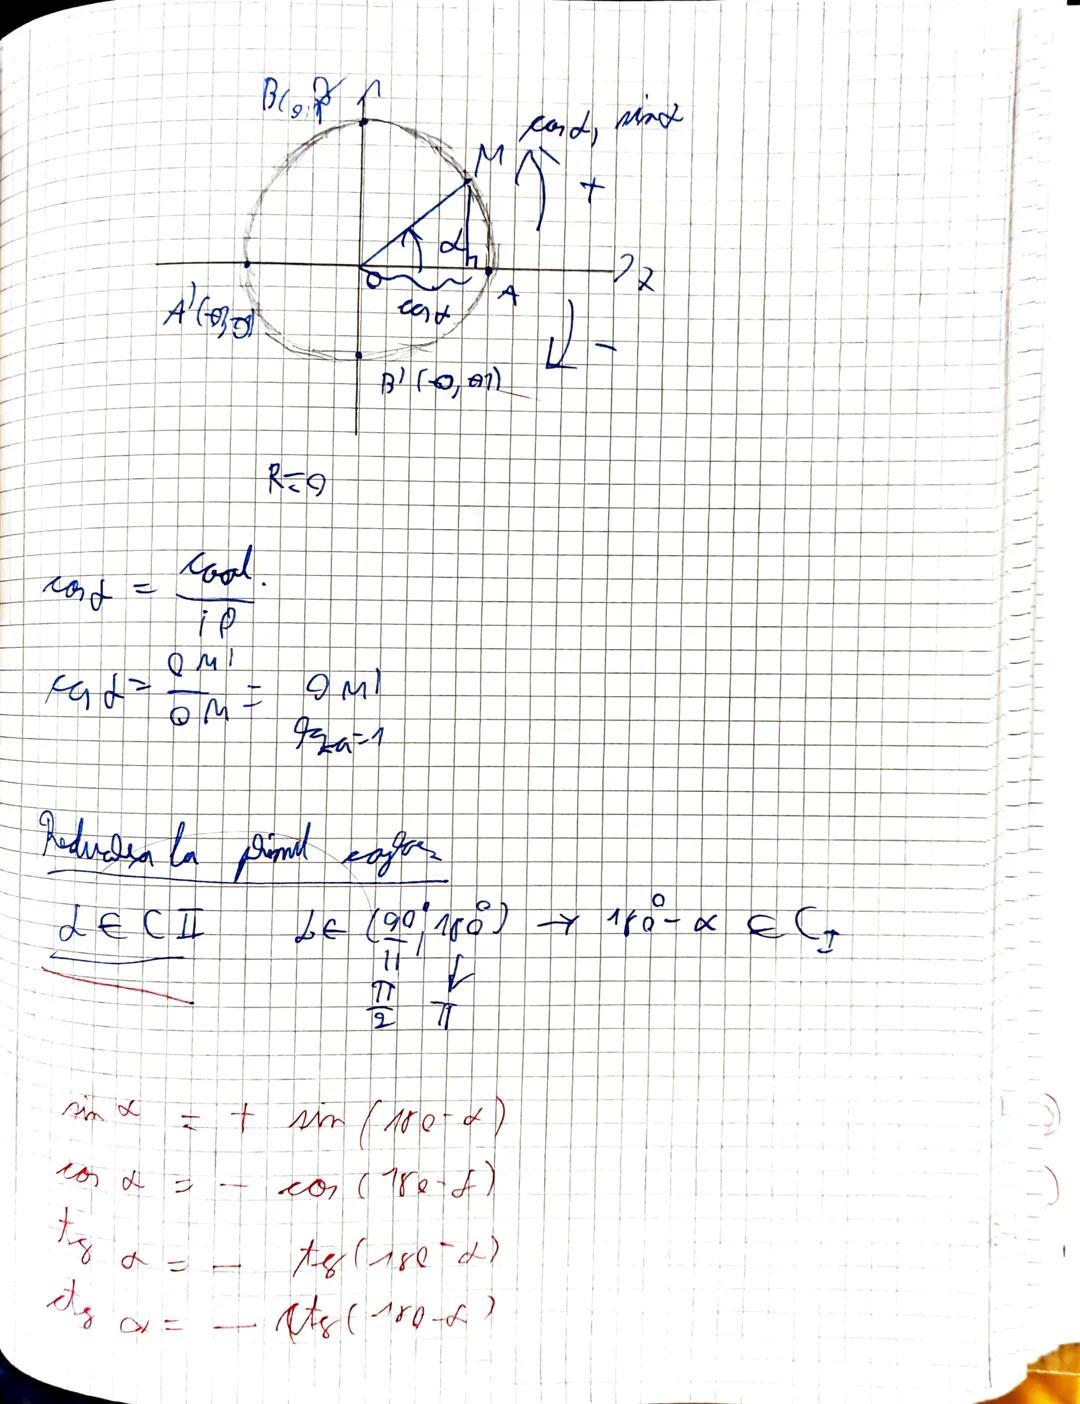 B(0,1)
M
cos α, sin α
+
α
O
cos α
A
x
A'(-1,0)
-
B'(-0, -1)
R=1
cos α = cat al. / ip
cos α = OM' / OM = OM'
Reducerea la primul cadran
α ∈ C II α ∈ (90°, 180°) → 180° - α ∈ C I
π/2 π
sin α = + sin (180 - α)
cos α = - cos (180 - α)
tg α = - tg (180 - α)
ctg α = - ctg (180 - α)